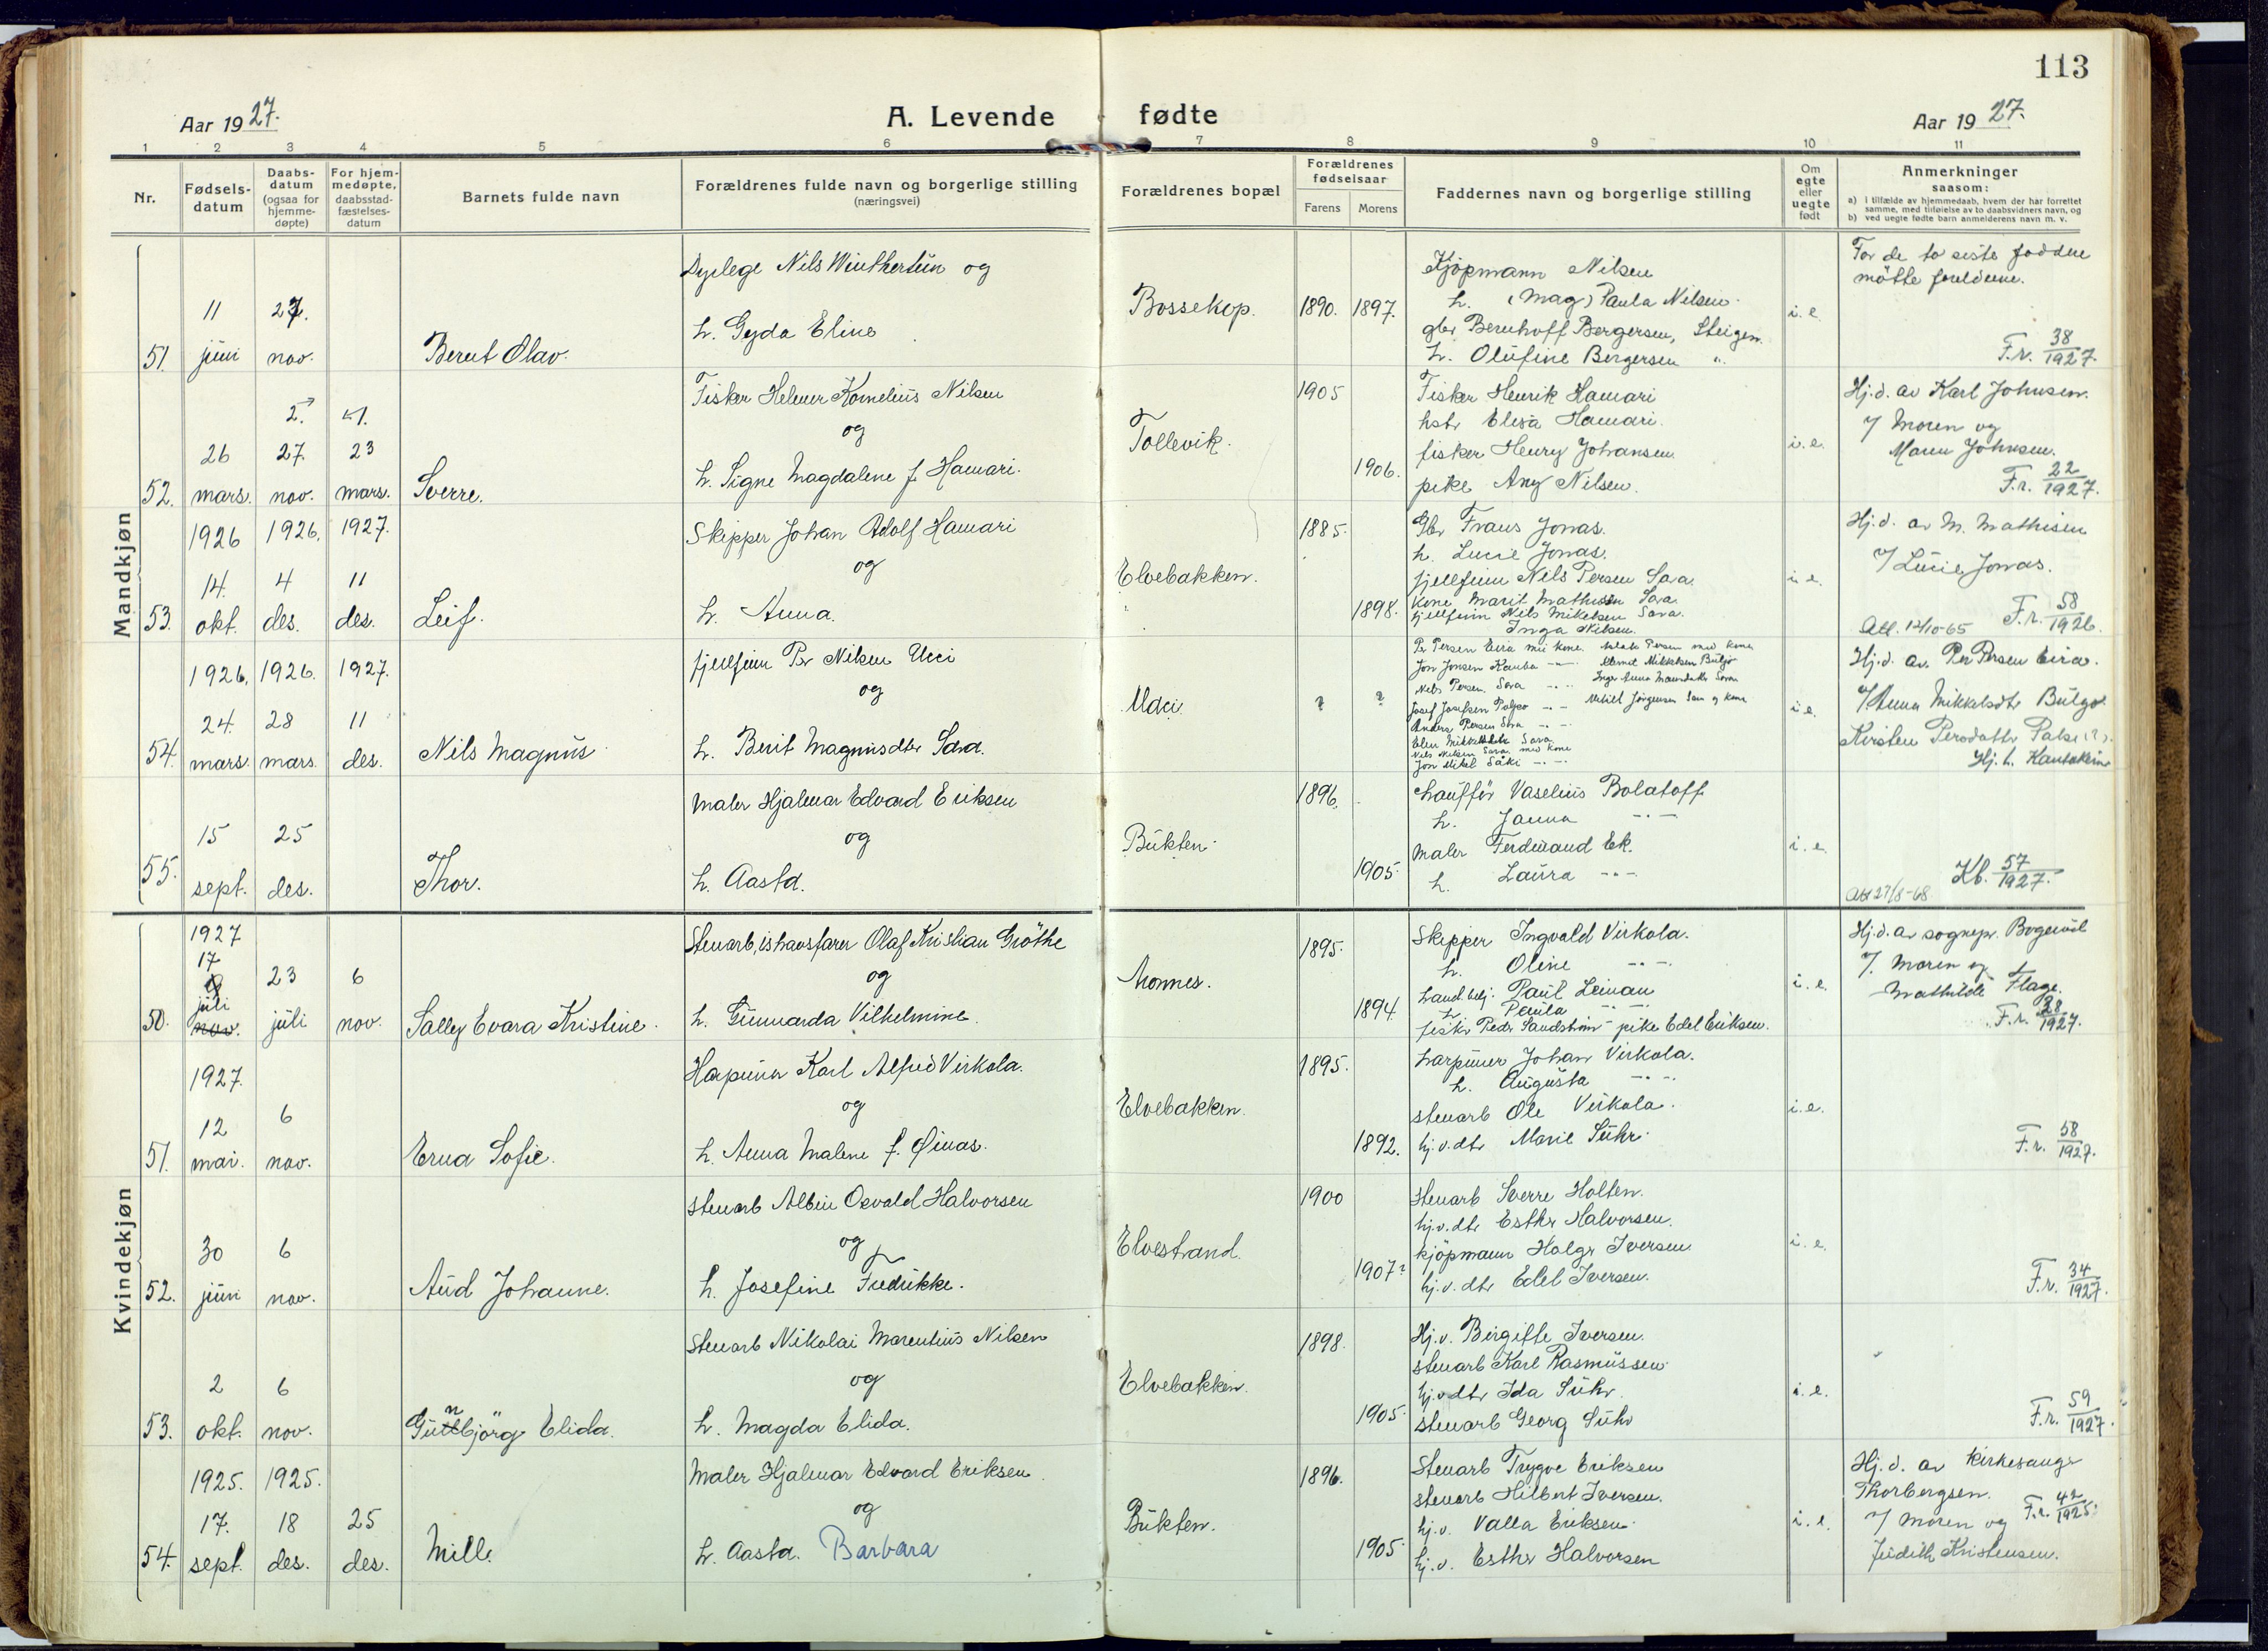 113
Aar 1927.
A. Levende fødte
Aar 1927.
1 2 3 4 5 6 7 8 9 10 11
Nr.
Fødsels-
datum
Daabs-
datum
(ogsaa for
hjemme-
døpte)
For hjem-
medøpte,
daabsstad-
fæstelses-
datum
Barnets fulde navn
Forældrenes fulde navn og borgerlige stilling
(næringsvei)
Forældrenes bopæl
Forældrenes
fødselsaar
Farens Morens
Faddernes navn og borgerlige stilling
Om
egte
eller
uegte
født
Anmerkninger
saasom:
a) i tilfælde av hjemmedaab, hvem der har forrettet
samme, med tilføielse av to daabsvidners navn, og
b) ved uegte fødte barn anmelderens navn m. v.
Mandkjøn
51. 11 juni
27. nov.
Bernt Olav.
Dyrlege Nils Winthertun og
h. Gyda Eline
Bossekop.
1890. 1897.
Kjøpmann Nilsen
h. (Mag) Paula Nilsen.
gbr Bernhoff Bergersen, Steigen
h. Olufine Bergersen "
i. e.
For de to siste faddere
møtte foreldrene.
F.r. 38/1927.
52. 26 mars.
27. nov.
23 mars.
Sverre.
Fisker Helmer Kornelius Nilsen
og
h. Signe Magdalene f. Hamari.
Tollevik.
1905
1906.
Fisker Henrik Hamari
hstr Elisa Hamari.
fisker Henry Johansen
pike Any Nilsen.
i. e.
Hj.d. av Karl Johnsen.
v/ Moren og
Maren Johnsen.
F.r. 22/1927.
53. 1926 14. okt.
1926. 4 des.
1927. 11 des.
Leif.
Skipper Johan Adolf Hamari
og
h. Anna.
Elvebakken.
1885.
1898.
Gbr Frans Jonas.
h. Lucie Jonas.
fjellfinn Nils Persen Sara
Kone Marit Mathisdtr Sara
fjellfinn Nils Mikkelsen Sara.
Inga Nilsen.
i. e.
Hj.d. av M. Mathisen
v/ Lucie Jonas.
Att. 12/10-65 F.r. 58/1926.
54. 1926. 24. mars.
1926. 28 mars.
1927. 11 des.
Nils Magnus
fjellfinn Per Nilsen Ucci
og
h. Berit Magnusdtr Sara.
? ?
Per Persen Eira med kone.
Jon Jonsen
Nils Persen Sara
Josef Josefsen
Anders Persen Sara
Ellen Mikkelsdtr Sara.
Nils Nilsen Sara med kone
Jon Mikel
i. e.
Hj.d. av Per Persen Eira.
v/ Anna Mikkelsdtr Bulgo
Kirsten Persdatter
Hj. h. Kautokeino
55. 15 sept.
25 des.
Thor.
Maler Hjalmar Edvard Eriksen
og
h. Aasta.
Bukten.
1896.
1905
Chauffør Vaselius Bolatoff
h. Janna -"-
Maler Ferdinand Ek.
h. Laura -"-
i. e.
Kb. 57/1927.
Att 27/8-68
Kvindekjøn
50. 1927 17 juli
23 juli
6 nov.
Sally Evara Kristine.
Stenarb, ishavsfarer Olaf Kristian Grøthe
og
h. Gunnarda Vilhelmine.
1895.
1894
Skipper Ingvald Virkola.
h. Oline -"-
Handl.betj. Paul Leinan
h. Paula -"-
fisker Peder Sandstrøm - pike Edel Eriksen.
i. e.
Hj.d. av sognepr. Bogevoll
v/. Moren og
Mathilde Flage.
F.r. 38/1927.
51. 1927. 12 mai.
6 nov.
Erna Sofie.
Harpuner Karl Alfred Virkola.
og
h. Anna Malene f. Øinas.
Elvebakken.
1895.
1892.
harpuner Johan Virkola.
h. Augusta -"-
stenarb Ole Virkola.
hj.v.dtr Marie Suhr.
i. e.
F.r. 58/1927.
52. 30 juni
6 nov.
Aud Johanne.
Stenarb Albin Osvald Halvorsen
og
h. Josefine Fredrikke.
Elvestrand.
1900
1907?
Stenarb Sverre Holten.
hj.v.dtr Esther Halvorsen.
kjøpmann Holger Iversen
hj.v.dtr Edel Iversen.
i. e.
F.r. 34/1927.
53. 2 okt.
6 nov.
Gunbjörg Elida.
Stenarb Nikolai Marentius Nilsen
og
h. Magda Elida.
Elvebakken.
1898.
1905.
Hj.v. Birgitte Iversen.
stenarb Karl Rasmussen
hj.v.dtr Ida Suhr.
stenarb Georg Suhr
i. e.
F.r. 59/1927.
54. 1925. 17. sept.
1925. 18 des.
25 des.
Mille
Maler Hjalmar Edvard Eriksen
og
h. Aasta. Barbara
Bukten.
1896.
1905.
Stenarb Trygve Eriksen
stenarb Hilbert Iversen.
hj.v. Valla Eriksen.
hj.v. Esther Halvorsen
i. e.
Hj.d. av kirkesanger
Thorbergsen.
v/ Moren og F.r. 42/1925.
Judith Kristensen.